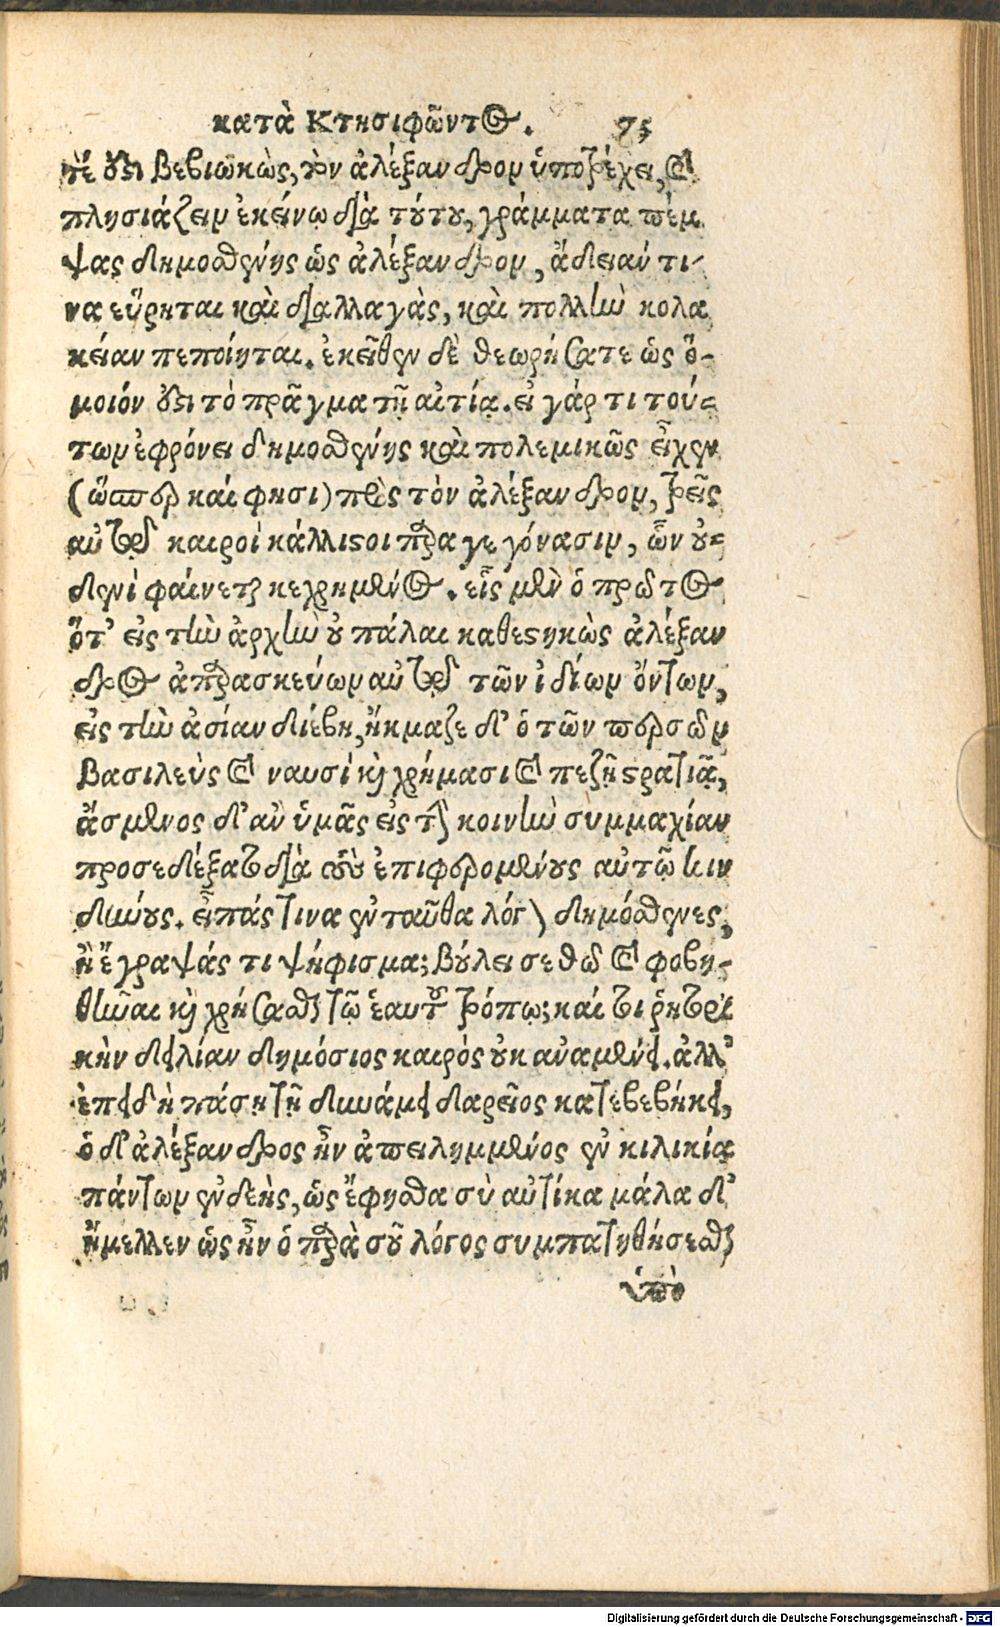 κατὰ Κτησιφῶντος. 75
τέ ἐστι βεβιωκὼς, τὸν ἀλέξανδρον ὑποτρέχει, καὶ
πλησιάζειν ἐκείνῳ διὰ τούτου, γράμματα πέμ
ψας δημοσθένης ὡς ἀλέξανδρον, ἄδειάν τι-
να εὕρηται καὶ διαλλαγὰς, καὶ πολλὴν κολα
κείαν πεποίηται. ἐκεῖθεν δὲ θεωρήσατε ὡς ὅ-
μοιόν ἐστι τὸ πρᾶγμα τῇ αἰτίᾳ. εἰ γάρ τι τού-
των ἐφρόνει δημοσθένης καὶ πολεμικῶς εἶχεν
(ὥσπερ καί φησι) πρὸς τὸν ἀλέξανδρον, τρεῖς
αὐτῷ καιροὶ κάλλιστοι παραγεγόνασιν, ὧν οὐ-
δενὶ φαίνεται κεχρημένος. εἷς μὲν ὁ πρῶτος
ὅτ’ εἰς τὴν ἀρχὴν οὐ πάλαι καθεστηκὼς ἀλέξαν
δρος ἀπαρασκεύων αὐτῷ τῶν ἰδίων ὄντων,
εἰς τὴν ἀσίαν διέβη, ἤκμαζε δ’ ὁ τῶν περσῶν
βασιλεὺς καὶ ναυσί καὶ χρήμασι καὶ πεζῇ στρατιᾷ,
ἄσμενος δ’ ἂν ὑμᾶς εἰς τὴν κοινὴν συμμαχίαν
προσεδέξατο διὰ τοὺς ἐπιφερομένους αὐτῷ κιν
δύνους. εἶπάς τινα ἐνταῦθα λόγον δημόσθενες,
ἢ ἔγραψάς τι ψήφισμα; βούλει σε θῶ καὶ φοβη-
θῆναι καὶ χρήσασθαι τῷ ἑαυτοῦ τρόπῳ; καί τοι ῥητορι
κὴν δειλίαν δημόσιος καιρὸς οὐκ ἀναμένει. ἀλλ’
ἐπειδὴ πάσῃ τῇ δυνάμει δαρεῖος κατεβεβήκει,
ὁ δ’ ἀλέξανδρος ἦν ἀπειλημμένος ἐν κιλικίᾳ
πάντων ἐνδεὴς, ὡς ἔφησθα σὺ αὐτίκα μάλα δ’
ἤμελλεν ὡς ἦν ὁ παρὰ σοῦ λόγος συμπατηθήσεσθαι
ὑπὸ
Digitalisierung gefördert durch die Deutsche Forschungsgemeinschaft - DFG